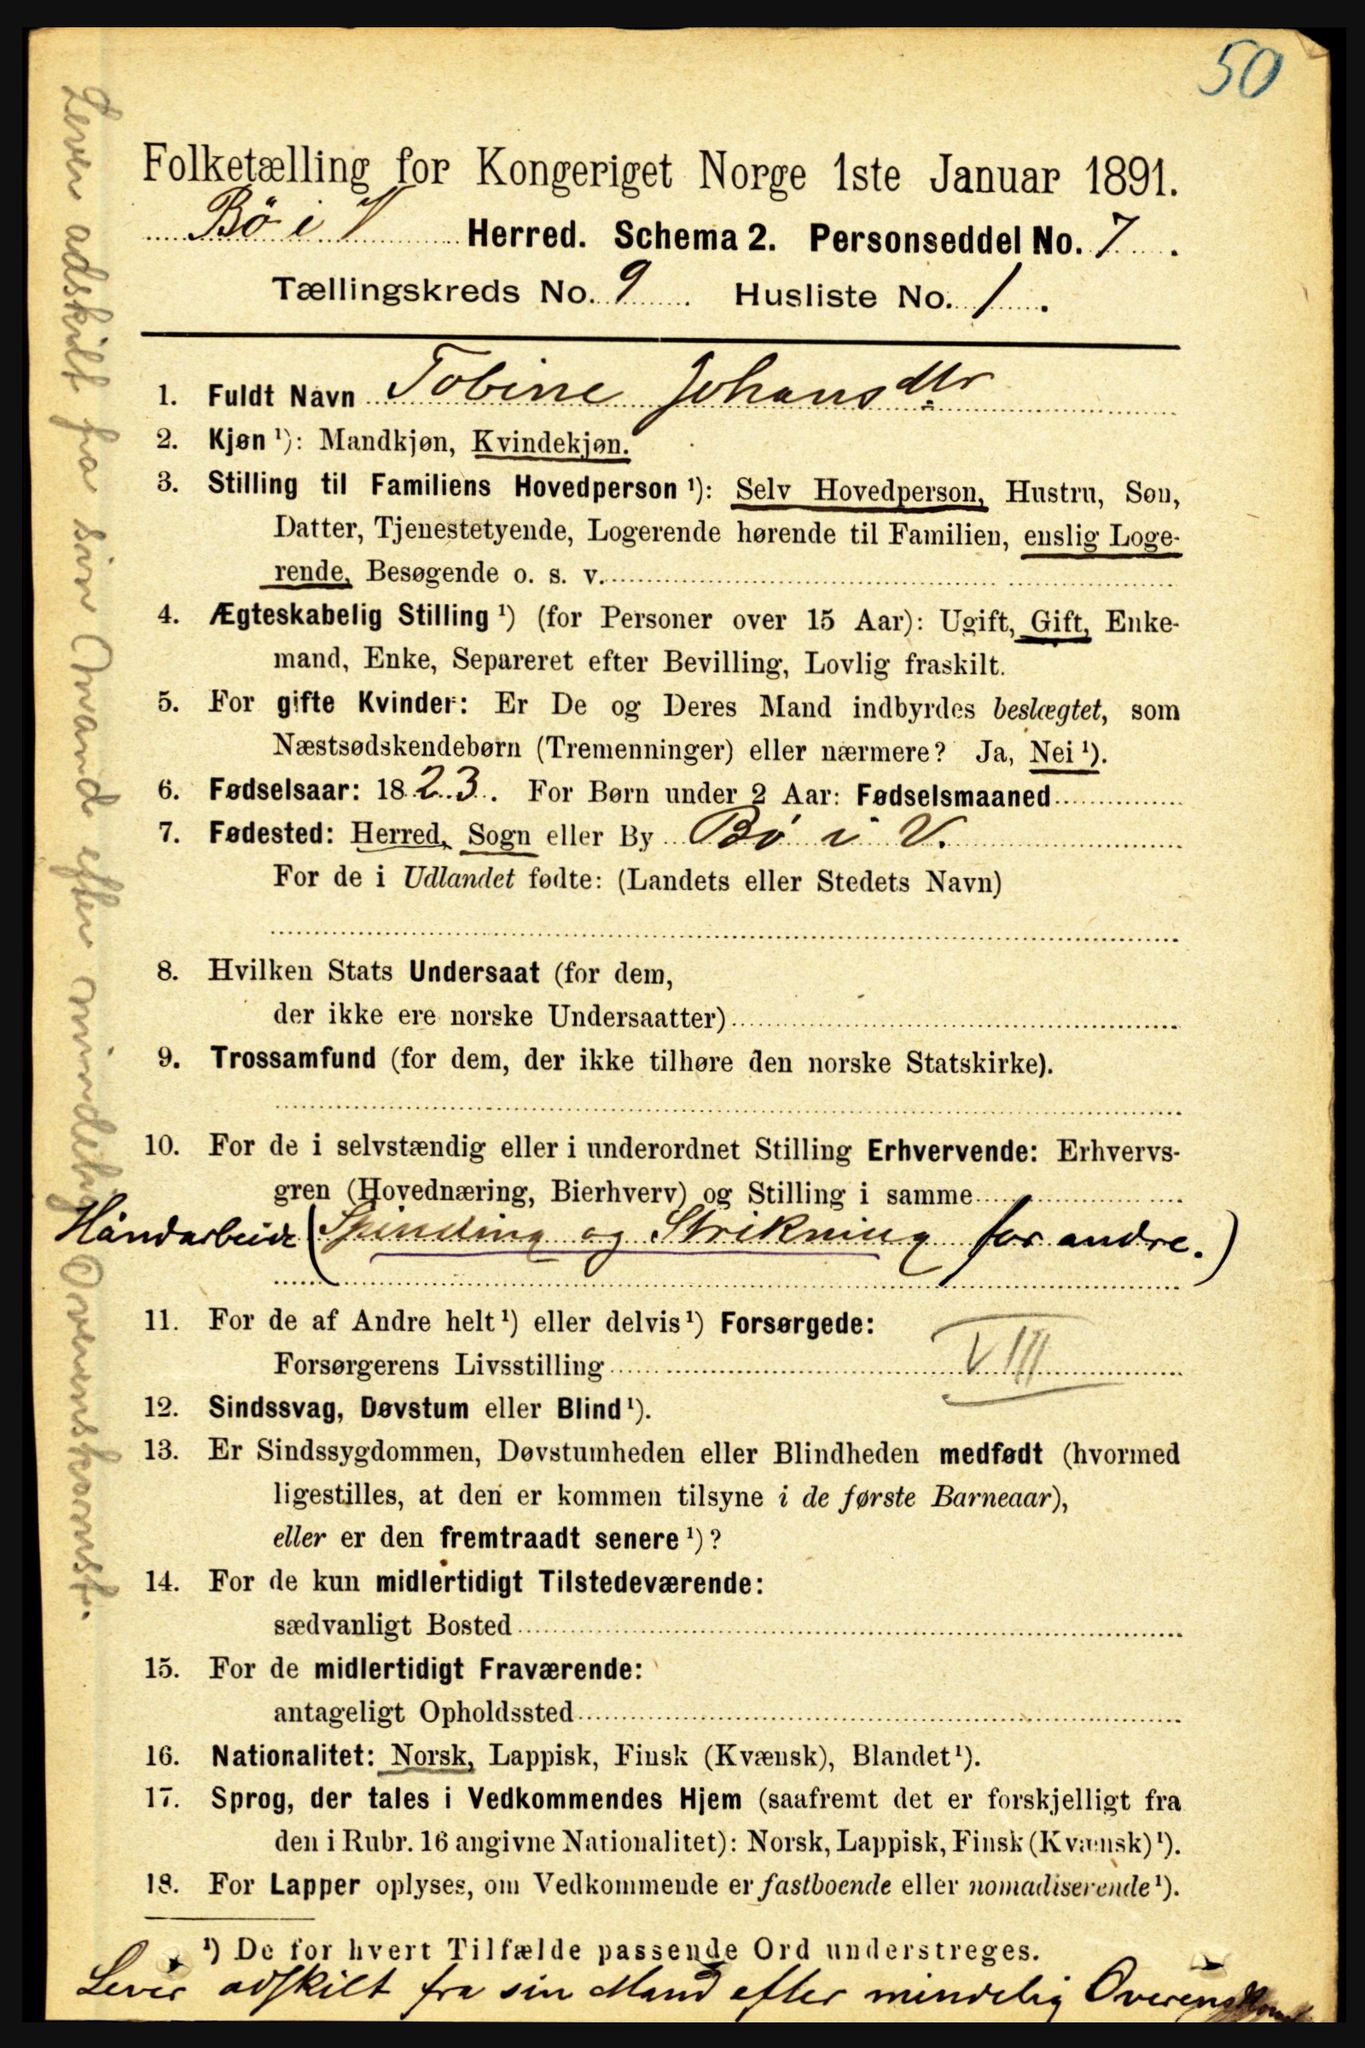 50
Folketælling for Kongeriget Norge 1ste Januar 1891.
Bö i V Herred. Schema 2. Personseddel No. 7.
Tællingskreds No. 9 Husliste No. 1.
1. Fuldt Navn Tobine Johansdtr
2. Kjøn ¹): Mandkjøn, Kvindekjøn.
3. Stilling til Familiens Hovedperson ¹): Selv Hovedperson, Hustru, Søn,
Datter, Tjenestetyende, Logerende hørende til Familien, enslig Loge-
rende, Besøgende o. s. v.
4. Ægteskabelig Stilling ¹) (for Personer over 15 Aar): Ugift, Gift, Enke-
mand, Enke, Separeret efter Bevilling, Lovlig fraskilt.
5. For gifte Kvinder: Er De og Deres Mand indbyrdes beslægtet, som
Næstsødskendebørn (Tremenninger) eller nærmere? Ja, Nei ¹).
6. Fødselsaar: 1823. For Børn under 2 Aar: Fødselsmaaned
7. Fødested: Herred, Sogn eller By Bö i V.
For de i Udlandet fødte: (Landets eller Stedets Navn)
8. Hvilken Stats Undersaat (for dem,
der ikke ere norske Undersaatter)
9. Trossamfund (for dem, der ikke tilhøre den norske Statskirke).
10. For de i selvstændig eller i underordnet Stilling Erhvervende: Erhvervs-
gren (Hovednæring, Bierhverv) og Stilling i samme
Håndarbeide (Spinding og Strikning for andre.)
11. For de af Andre helt ¹) eller delvis ¹) Forsørgede:
Forsørgerens Livsstilling VIII
12. Sindssvag, Døvstum eller Blind ¹).
13. Er Sindssygdommen, Døvstumheden eller Blindheden medfødt (hvormed
ligestilles, at den er kommen tilsyne i de første Barneaar),
eller er den fremtraadt senere ¹)?
14. For de kun midlertidigt Tilstedeværende:
sædvanligt Bosted
15. For de midlertidigt Fraværende:
antageligt Opholdssted
16. Nationalitet: Norsk, Lappisk, Finsk (Kvænsk), Blandet ¹).
17. Sprog, der tales i Vedkommendes Hjem (saafremt det er forskjelligt fra
den i Rubr. 16 angivne Nationalitet): Norsk, Lappisk, Finsk (Kvænsk) ¹).
18. For Lapper oplyses, om Vedkommende er fastboende eller nomadiserende ¹).
¹) De for hvert Tilfælde passende Ord understreges.
Lever adskilt fra sin Mand efter mindelig Overenskomst
Lever adskilt fra sin Mand efter mindelig Overenskomst.